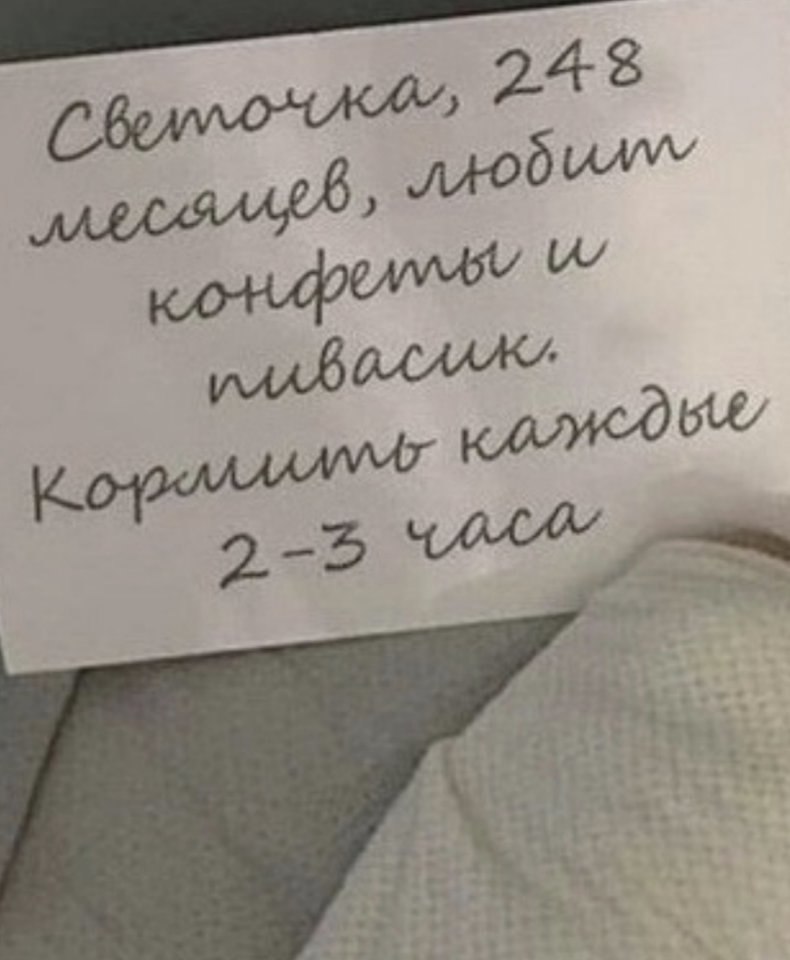 Светочка, 248
месяцев, любит
конфеты и
пивасик.
Кормить каждые
2-3 часа